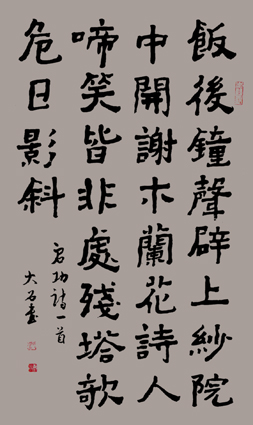 飯後鐘聲辟上紗院
中開謝木蘭花詩人
啼笑皆非處殘塔欹
危日影斜
启功詩一首
大石書